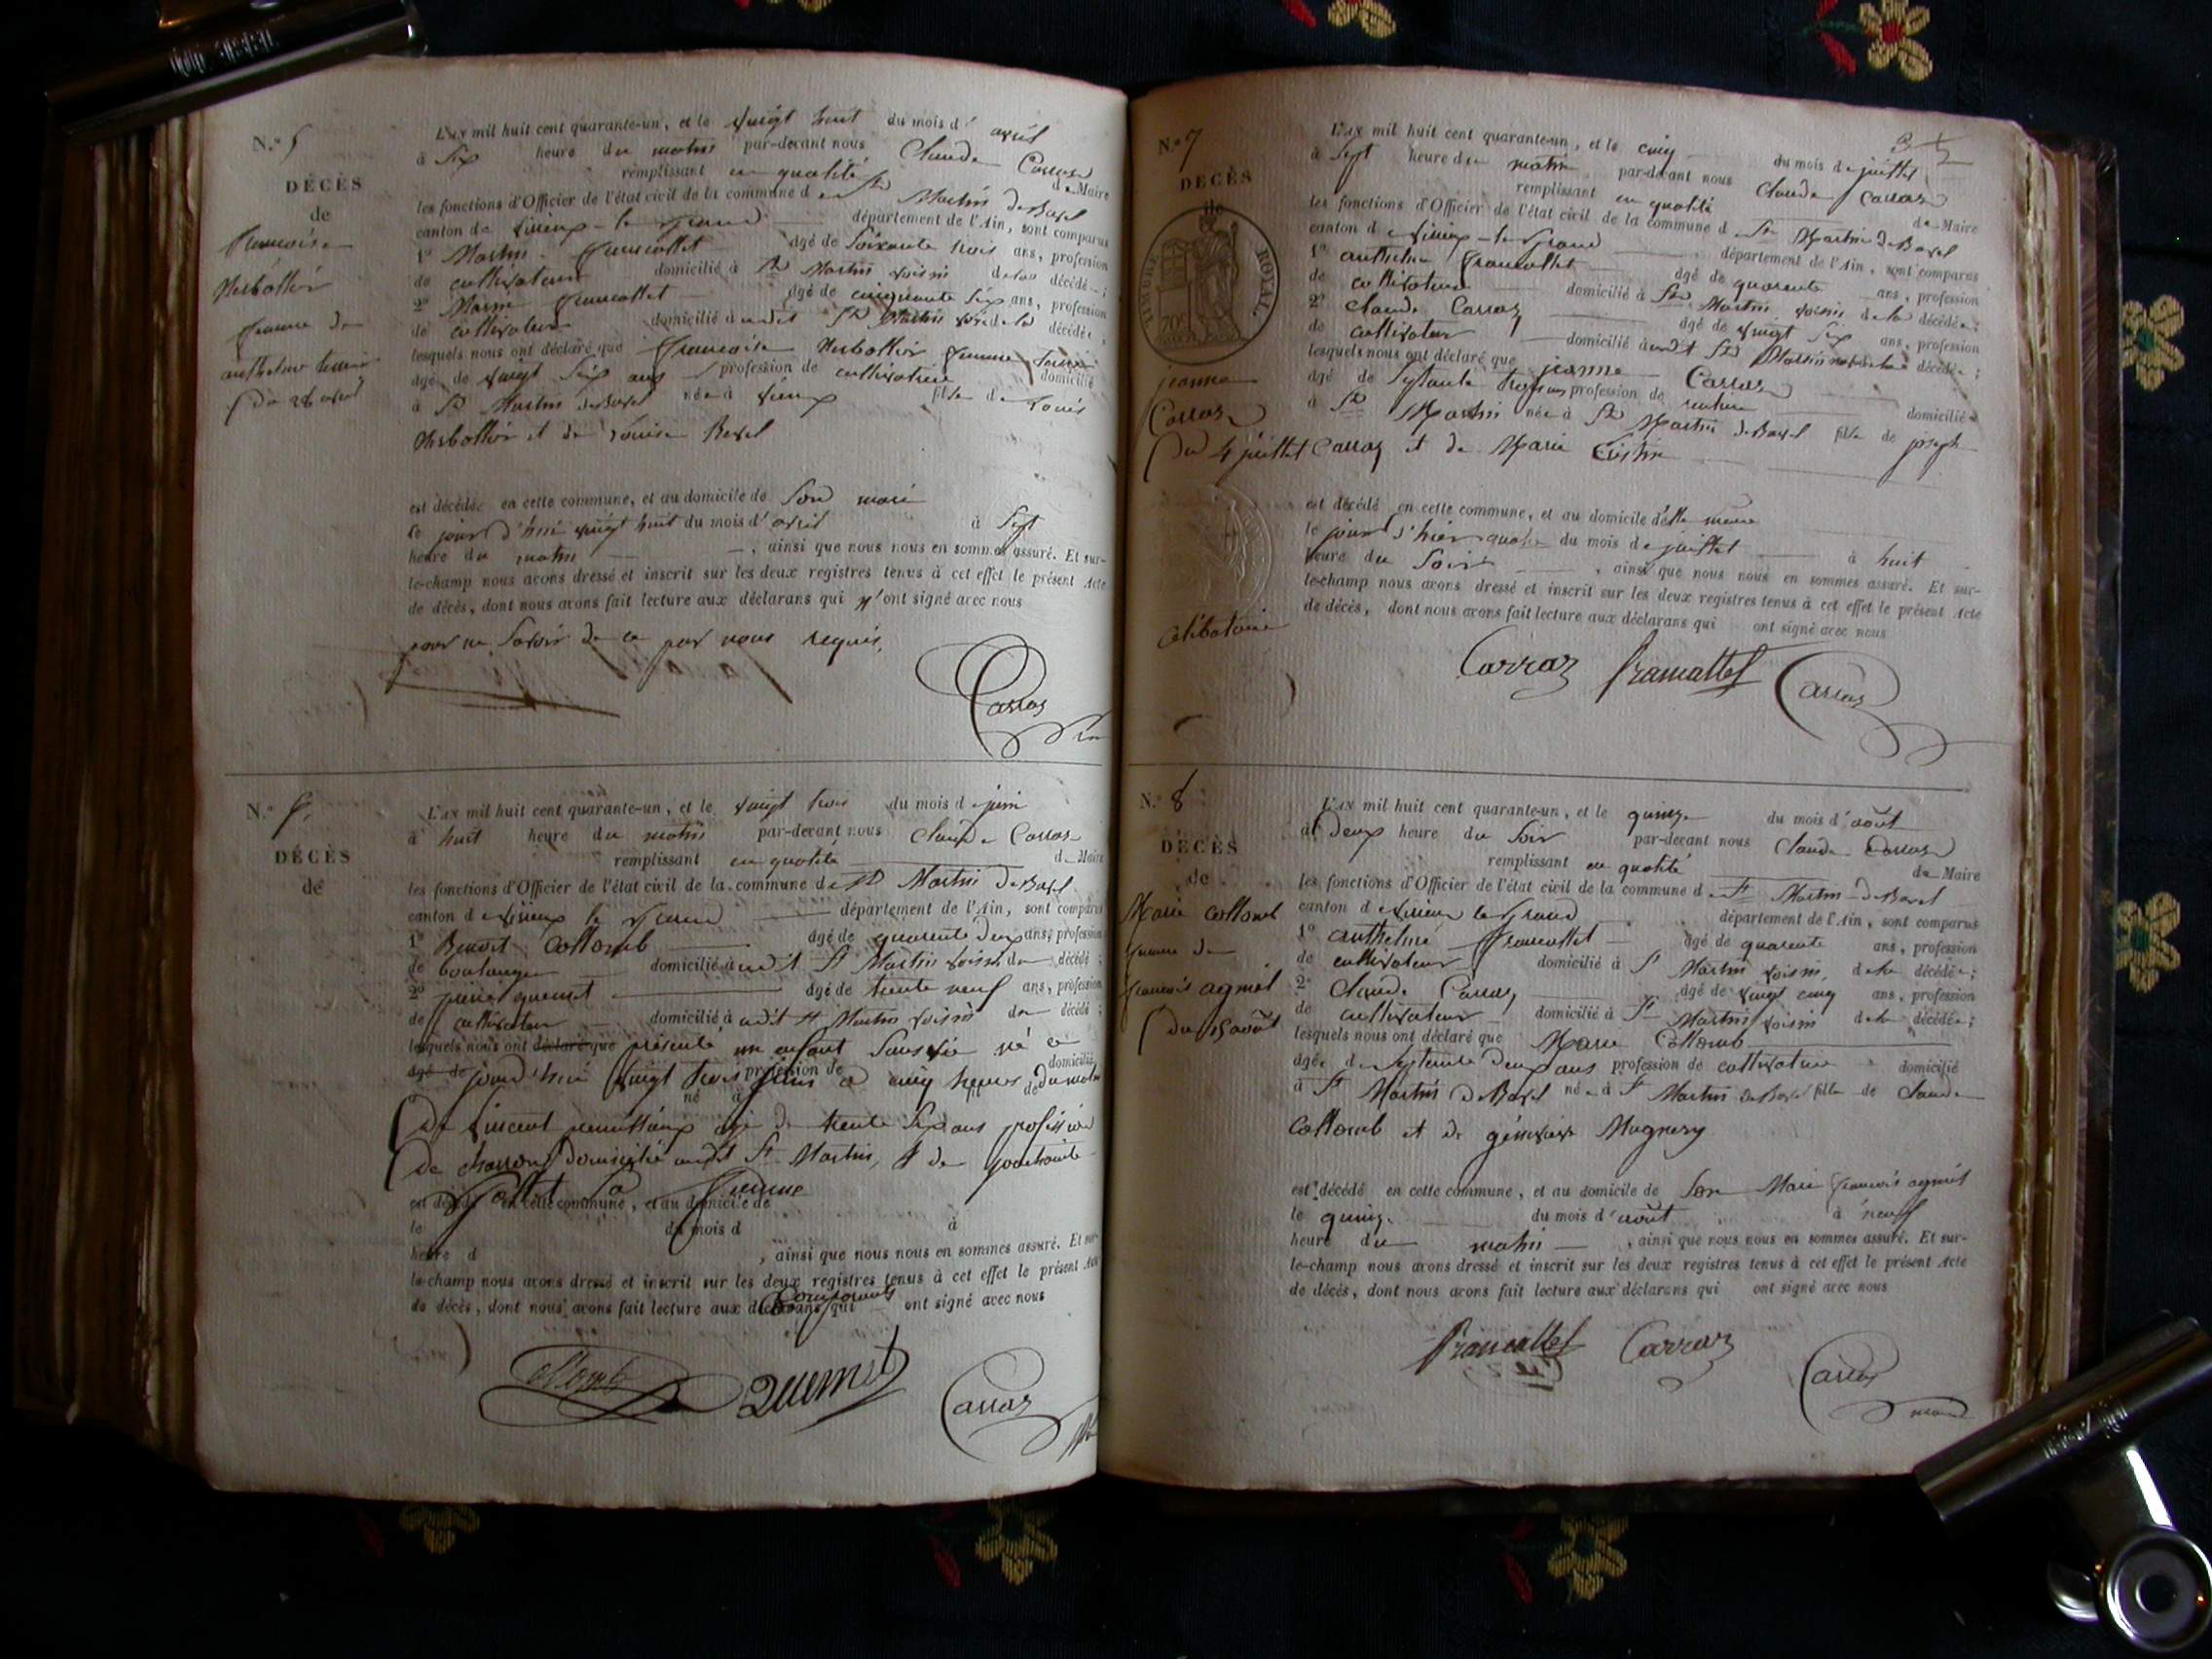 N.o 5
DÉCÈS
de
francoise
herbottier
femme de
anthelme
du 28 avril
L'AN mil huit cent quarante-un, et le vingt huit du mois d'avril
à six heure du matin par-devant nous Claude Carraz
remplissant en qualité de Maire
les fonctions d'Officier de l'état civil de la commune de St Martin de Bavel
canton de virieux-le-grand département de l'Ain, sont comparus
1o Martin francallet âgé de soixante trois ans, profession
de cultivateur domicilié à St Martin voisin de la décédée;
2o francallet âgé de cinquante six ans, profession
de cultivateur domicilié audit St Martin de la décédée;
lesquels nous ont déclaré que francoise herbottier femme
âgé de vingt six ans profession de cultivatrice domicilié
à St Martin de Bavel née à vieux fille de Louis
herbottier et de Louise Revel
est décédée en cette commune, et au domicile de son mari
le jour d'hui vingt huit du mois d'avril à sept
heure du matin, ainsi que nous nous en sommes assuré. Et sur-
le-champ nous avons dressé et inscrit sur les deux registres tenus à cet effet le présent Acte
de décès, dont nous avons fait lecture aux déclarans qui n'ont signé avec nous
pour ne savoir de ce par nous requis,
Carraz
N.o
DÉCÈS
de
L'AN mil huit cent quarante-un, et le vingt trois du mois de juin
à huit heure du matin par-devant nous Claude Carraz
remplissant en qualité de Maire
les fonctions d'Officier de l'état civil de la commune de St Martin de Bavel
canton de virieux le grand département de l'Ain, sont comparus
1o Benoit Collomb âgé de quarante deux ans, profession
de boulanger domicilié audit St Martin voisin du décédé;
2o quemet âgé de trente neuf ans, profession
de cultivateur domicilié audit St Martin voisin du décédé;
lesquels nous ont déclaré que présenté un enfant sans vie né ce
âgé de jourd'hui vingt trois juin à cinq heures du matin profession de domicilié
né à de
De vincent âgé de trente six ans profession
de charron domicilié audit St Martin, & de
Collet sa femme
est décédé en cette commune, et au domicile de
le du mois d à
heure d, ainsi que nous nous en sommes assuré. Et sur-
le-champ nous avons dressé et inscrit sur les deux registres tenus à cet effet le présent Acte
de décès, dont nous avons fait lecture aux déclarans comparants qui ont signé avec nous
Collomb Quemet Carraz
34
N.o 7
DÉCÈS
de
TIMBRE ROYAL
70c
jeanne
Carraz
du 4 juillet
célibataire
L'AN mil huit cent quarante-un, et le cinq du mois de juillet
à sept heure du matin par-devant nous Claude Carraz
remplissant en qualité de Maire
les fonctions d'Officier de l'état civil de la commune de St Martin de Bavel
canton de virieux-le-grand département de l'Ain, sont comparus
1o anthelme francallet âgé de quarante ans, profession
de cultivateur domicilié à St Martin voisin de la décédée;
2o Claude Carraz âgé de vingt six ans, profession
de cultivateur domicilié audit St Martin de la décédée;
lesquels nous ont déclaré que jeanne Carraz
âgé de septante trois ans profession de rentière domicilié
à St Martin née à St Martin de Bavel fille de joseph
Carraz et de Marie
est décédé en cette commune, et au domicile d'elle même
le jour d'hier quatre du mois de juillet à huit
heure du soir, ainsi que nous nous en sommes assuré. Et sur-
le-champ nous avons dressé et inscrit sur les deux registres tenus à cet effet le présent Acte
de décès, dont nous avons fait lecture aux déclarans qui ont signé avec nous
Carraz francallet Carraz
N.o 8
DÉCÈS
de
Marie Collomb
femme de
francois agniel
du 15 août
L'AN mil huit cent quarante-un, et le quinze du mois d'août
à Deux heure du soir par-devant nous Claude Carraz
remplissant en qualité de Maire
les fonctions d'Officier de l'état civil de la commune de St Martin de Bavel
canton de virieux le grand département de l'Ain, sont comparus
1o anthelme francallet âgé de quarante ans, profession
de cultivateur domicilié à St Martin voisin de la décédée;
2o Claude Carraz âgé de vingt cinq ans, profession
de cultivateur domicilié à St Martin voisin de la décédée;
lesquels nous ont déclaré que Marie Collomb
âgée de septante deux ans profession de cultivatrice domicilié
à St Martin de Bavel née à St Martin de Bavel fille de Claude
Collomb et de génevieve Mugnery
est décédé en cette commune, et au domicile de son Mari francois agniel
le quinze du mois d'août à neuf
heure du matin, ainsi que nous nous en sommes assuré. Et sur-
le-champ nous avons dressé et inscrit sur les deux registres tenus à cet effet le présent Acte
de décès, dont nous avons fait lecture aux déclarans qui ont signé avec nous
francallet Carraz Carraz